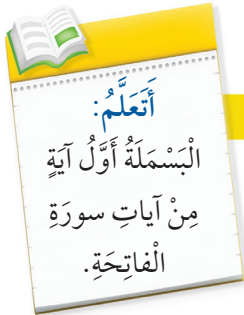 أَتَعَلَّمُ:
الْبَسْمَلَةُ أَوَّلُ آيَةٍ
مِنْ آياتِ سورَةِ
الْفاتِحَةِ.